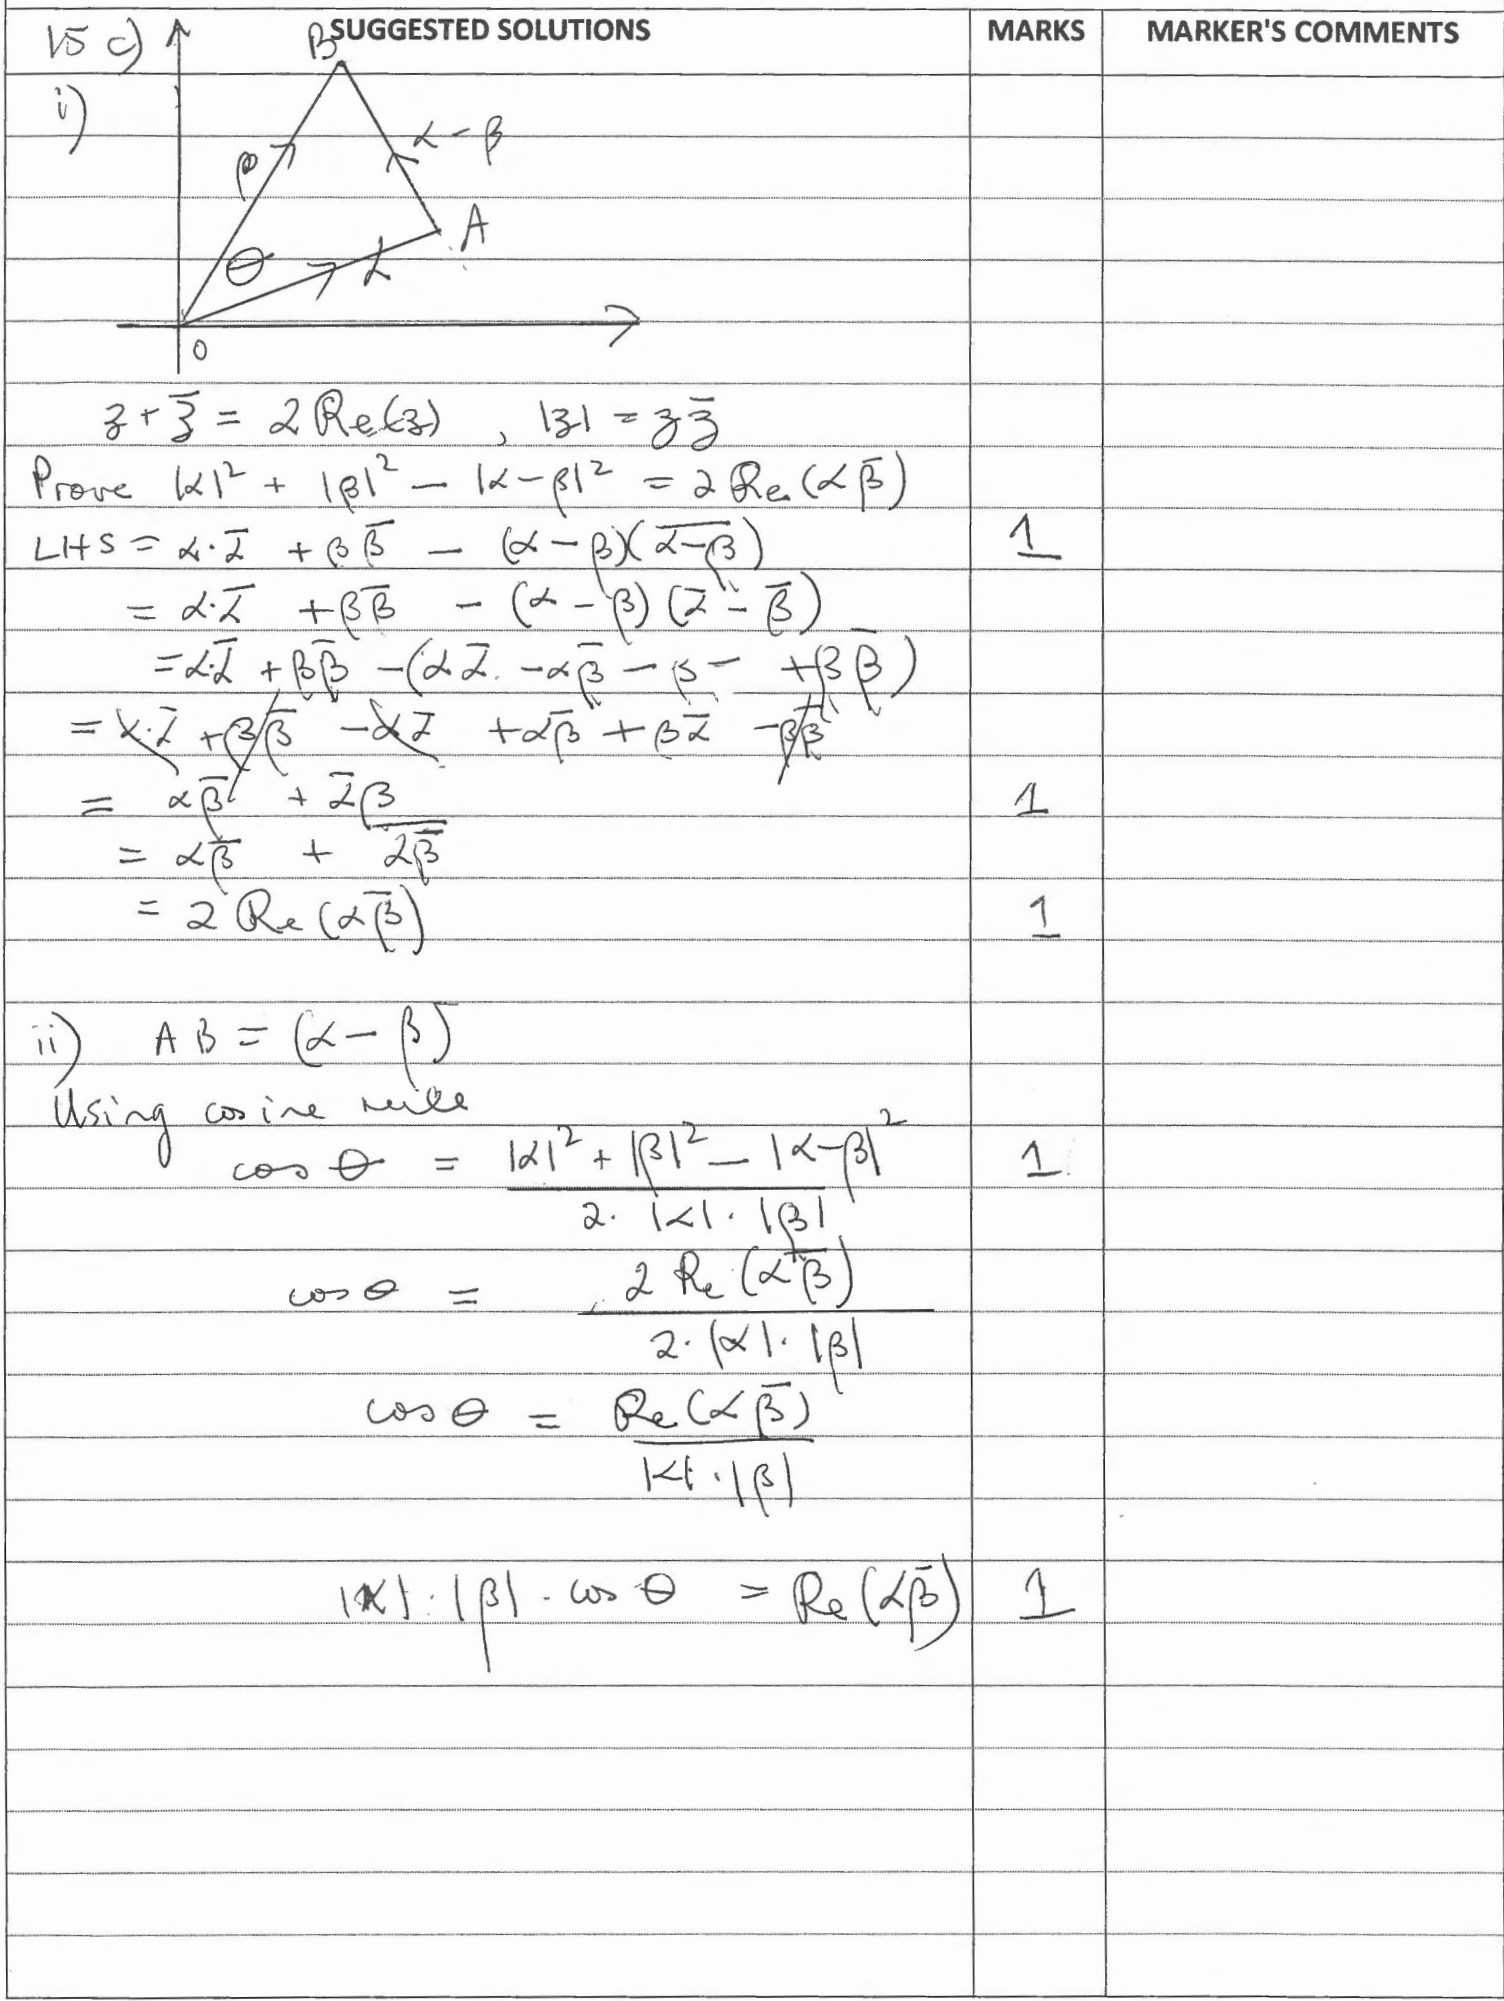 SUGGESTED SOLUTIONS MARKS MARKER'S COMMENTS
15 c)
i)
B
α - β
β
A
θ
α
0
z + z̄ = 2 Re(z) , |z| = z z̄
Prove |α|² + |β|² - |α-β|² = 2 Re (α β̄)
LHS = α.ᾱ + β β̄ - (α - β)(\overline{α-β}) 1
= α.ᾱ + β β̄ - (α - β) (ᾱ - β̄)
= α.ᾱ + β β̄ - (α ᾱ. - α β̄ - β - + β β̄)
= α.ᾱ + β β̄ - α ᾱ + α β̄ + β ᾱ - β β̄
= α β̄ + ᾱ β 1
= α β̄ + \overline{α β̄}
= 2 Re (α β̄) 1
ii) AB = (α - β)
Using cosine rule
cos θ = |α|² + |β|² - |α-β|² 1
2. |α| . |β|
cos θ = 2 Re (α β̄)
2. |α| . |β|
cos θ = Re (α β̄)
|α| . |β|
|α| . |β| . cos θ = Re (α β̄) 1